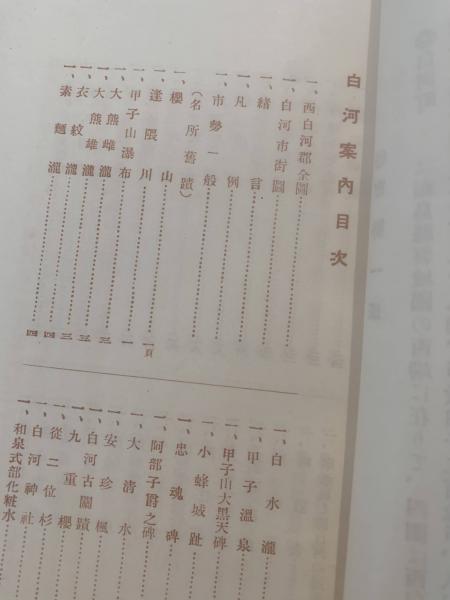 白河案內目次
一、西白河郡全圖
一、白河市街圖
一、緒言
一、凡例
一、市勢一般
(名所舊蹟)
一、櫻山
一、逢隈川……一頁
一、甲子山瀑布……一
一、大熊雌瀧……三
一、大熊雄瀧……三
一、衣紋瀧……三
一、素麵瀧……四
一、白水瀧
一、甲子溫泉
一、甲子山大黑天碑
一、小峰城趾
一、忠魂碑
一、阿部子爵之碑
一、大淸水
一、安珍楓
一、白河古關蹟
一、九重櫻
一、從二位杉
一、白河神社
一、和泉式部化粧水